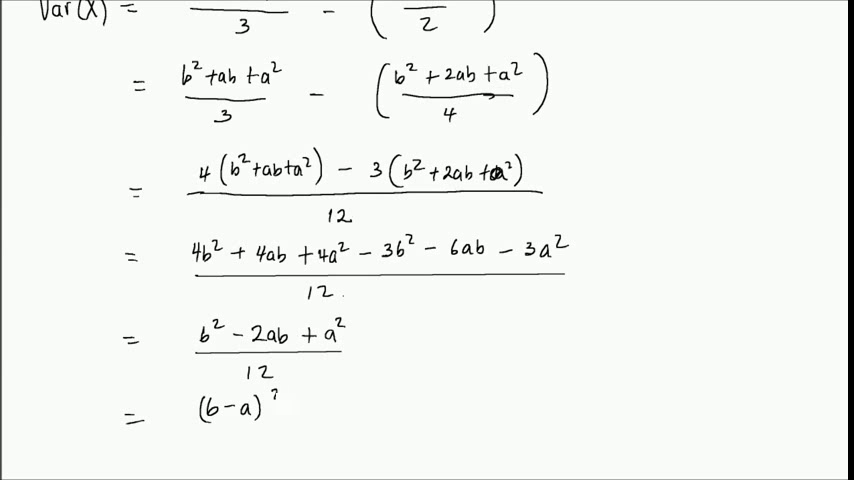 Var(X) = /3 - ( /2 )
= (b²+ab+a²)/3 - ((b²+2ab+a²)/4)
= (4(b²+ab+a²) - 3(b²+2ab+a²))/12
= (4b²+4ab+4a²-3b²-6ab-3a²)/12
= (b²-2ab+a²)/12
= (b-a)²